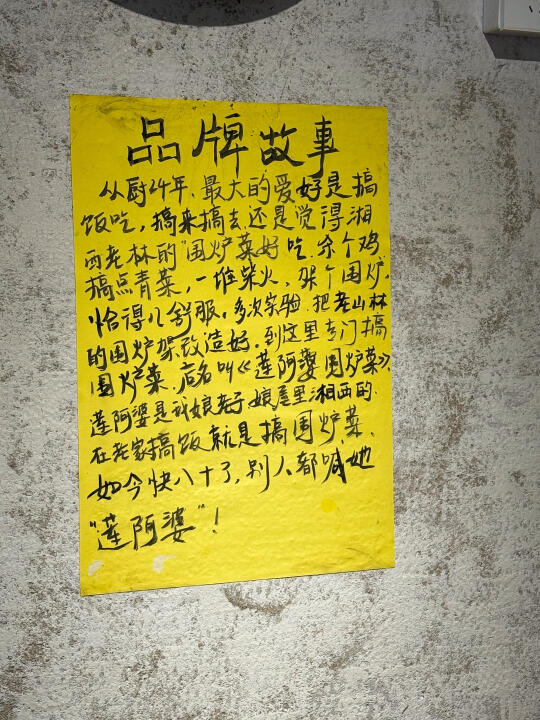 品牌故事
从厨24年、最大的爱好是搞
饭吃，搞来搞去还是觉得湘
西老林的"围炉菜好吃.余个鸡
搞点青菜，一堆柴火，架个围炉.
恰得儿舒服。多次实验.把老山林
的围炉架改造好.到这里专门搞
围炉菜.店名叫《莲阿婆围炉菜》.
莲阿婆是我娘老子.娘屋里湘西的.
在老家搞饭就是搞围炉菜、
如今快八十了，别人都喊她
"莲阿婆"！